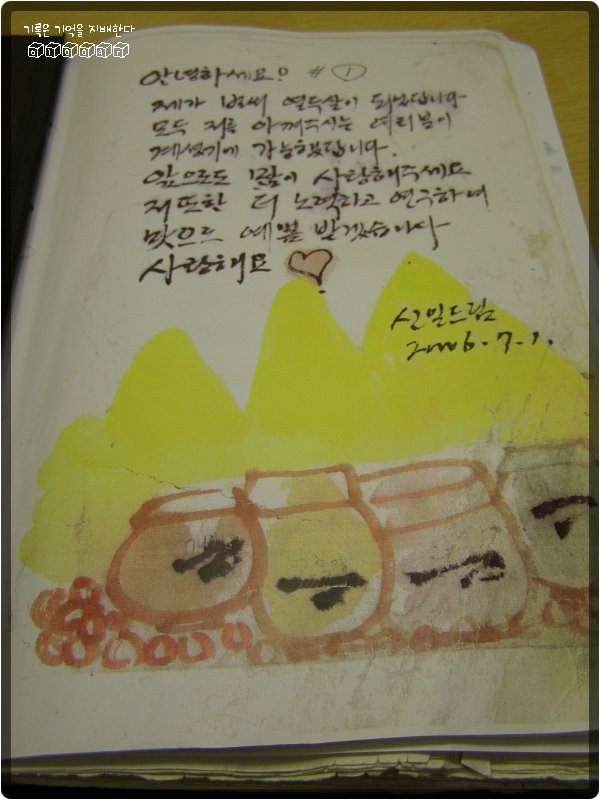 기록은 기억을 지배한다
안녕하세요! #①
제가 벌써 열두살이 되었답니다
모두 저를 아껴주시는 여러분이
계셨기에 가능했답니다.
앞으로도 많이 사랑해주세요
저또한 더 노력하고 연구하여
맛으로 예쁨 받겠습니다
사랑해요 ♡
드림
2006.7.1.